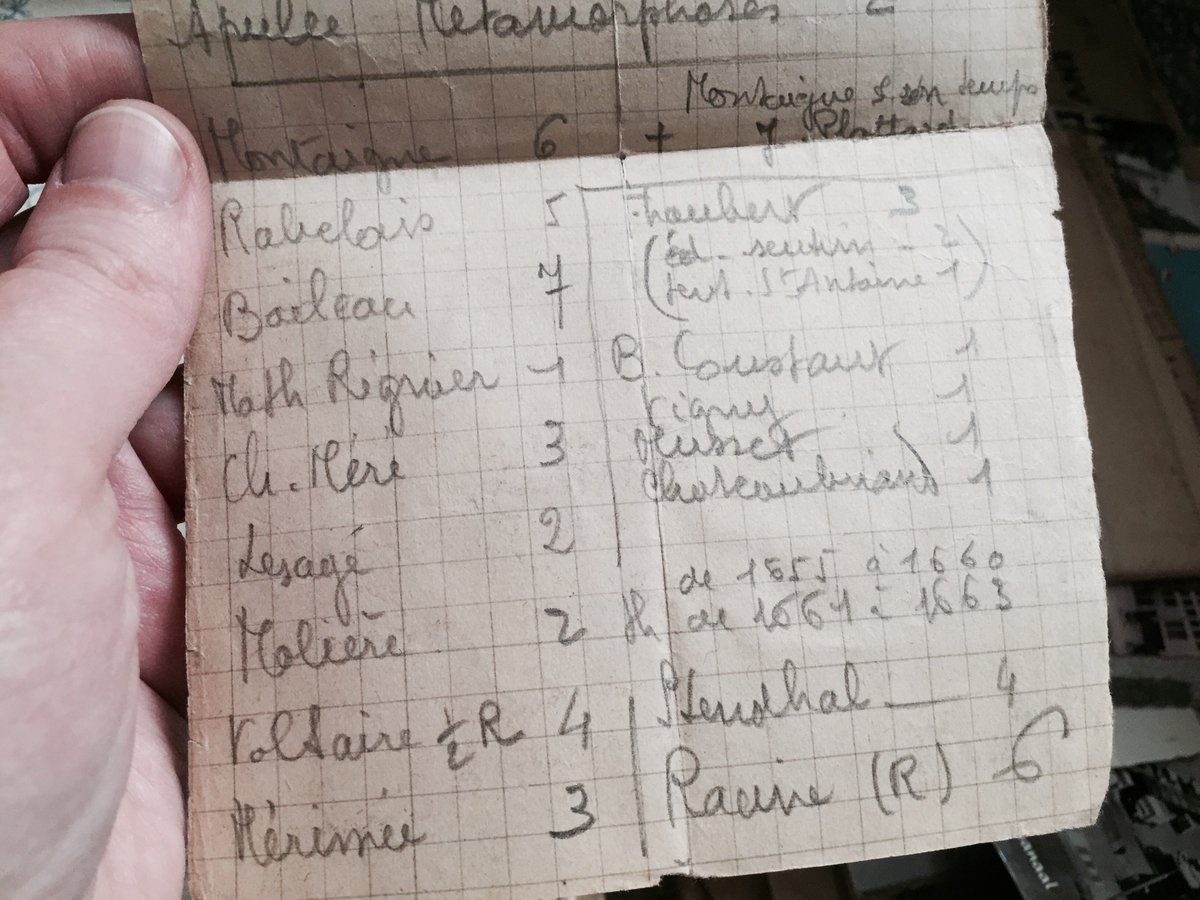 Apulée Métamorphoses 2
Montaigne & son temps
Montaigne 6 + J. Plattard
Rabelais 5
Boileau 7
Math Régnier 1
Ch. Méré 3
Lesage 2
Molière 2
Voltaire ½ R 4
Mérimée 3
Flaubert 3
(éd. - 2
tent. St Antoine 1)
B. Constant 1
Vigny 1
Musset 1
Chateaubriand 1
de 1655 à 1660
de 1661 à 1663
Stendhal — 4
Racine (R) 6
anaal